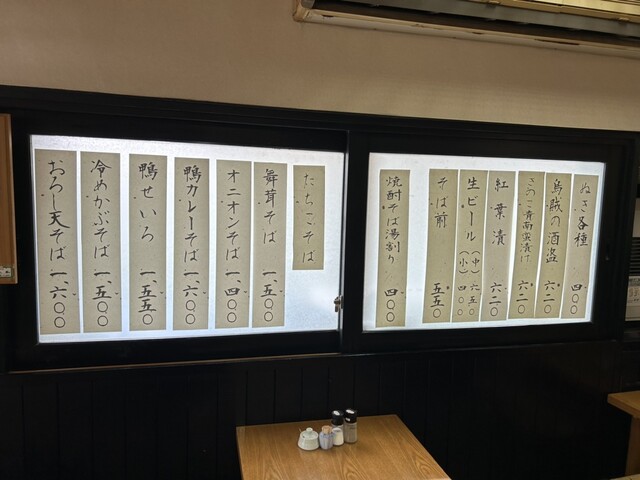 ぬき各種 四〇〇
烏賊の酒盗 六二〇
きのこ青南蛮漬け 六二〇
紅葉漬 六二〇
生ビール (中) 六五〇
(小) 四〇〇
そば前 五五〇
焼酎そば湯割り 四〇〇
たちこそば
舞茸そば 一、五〇〇
オニオンそば 一、四〇〇
鴨カレーそば 一、六〇〇
鴨せいろ 一、五五〇
冷めかぶそば 一、五〇〇
おろし天そば 一、六〇〇